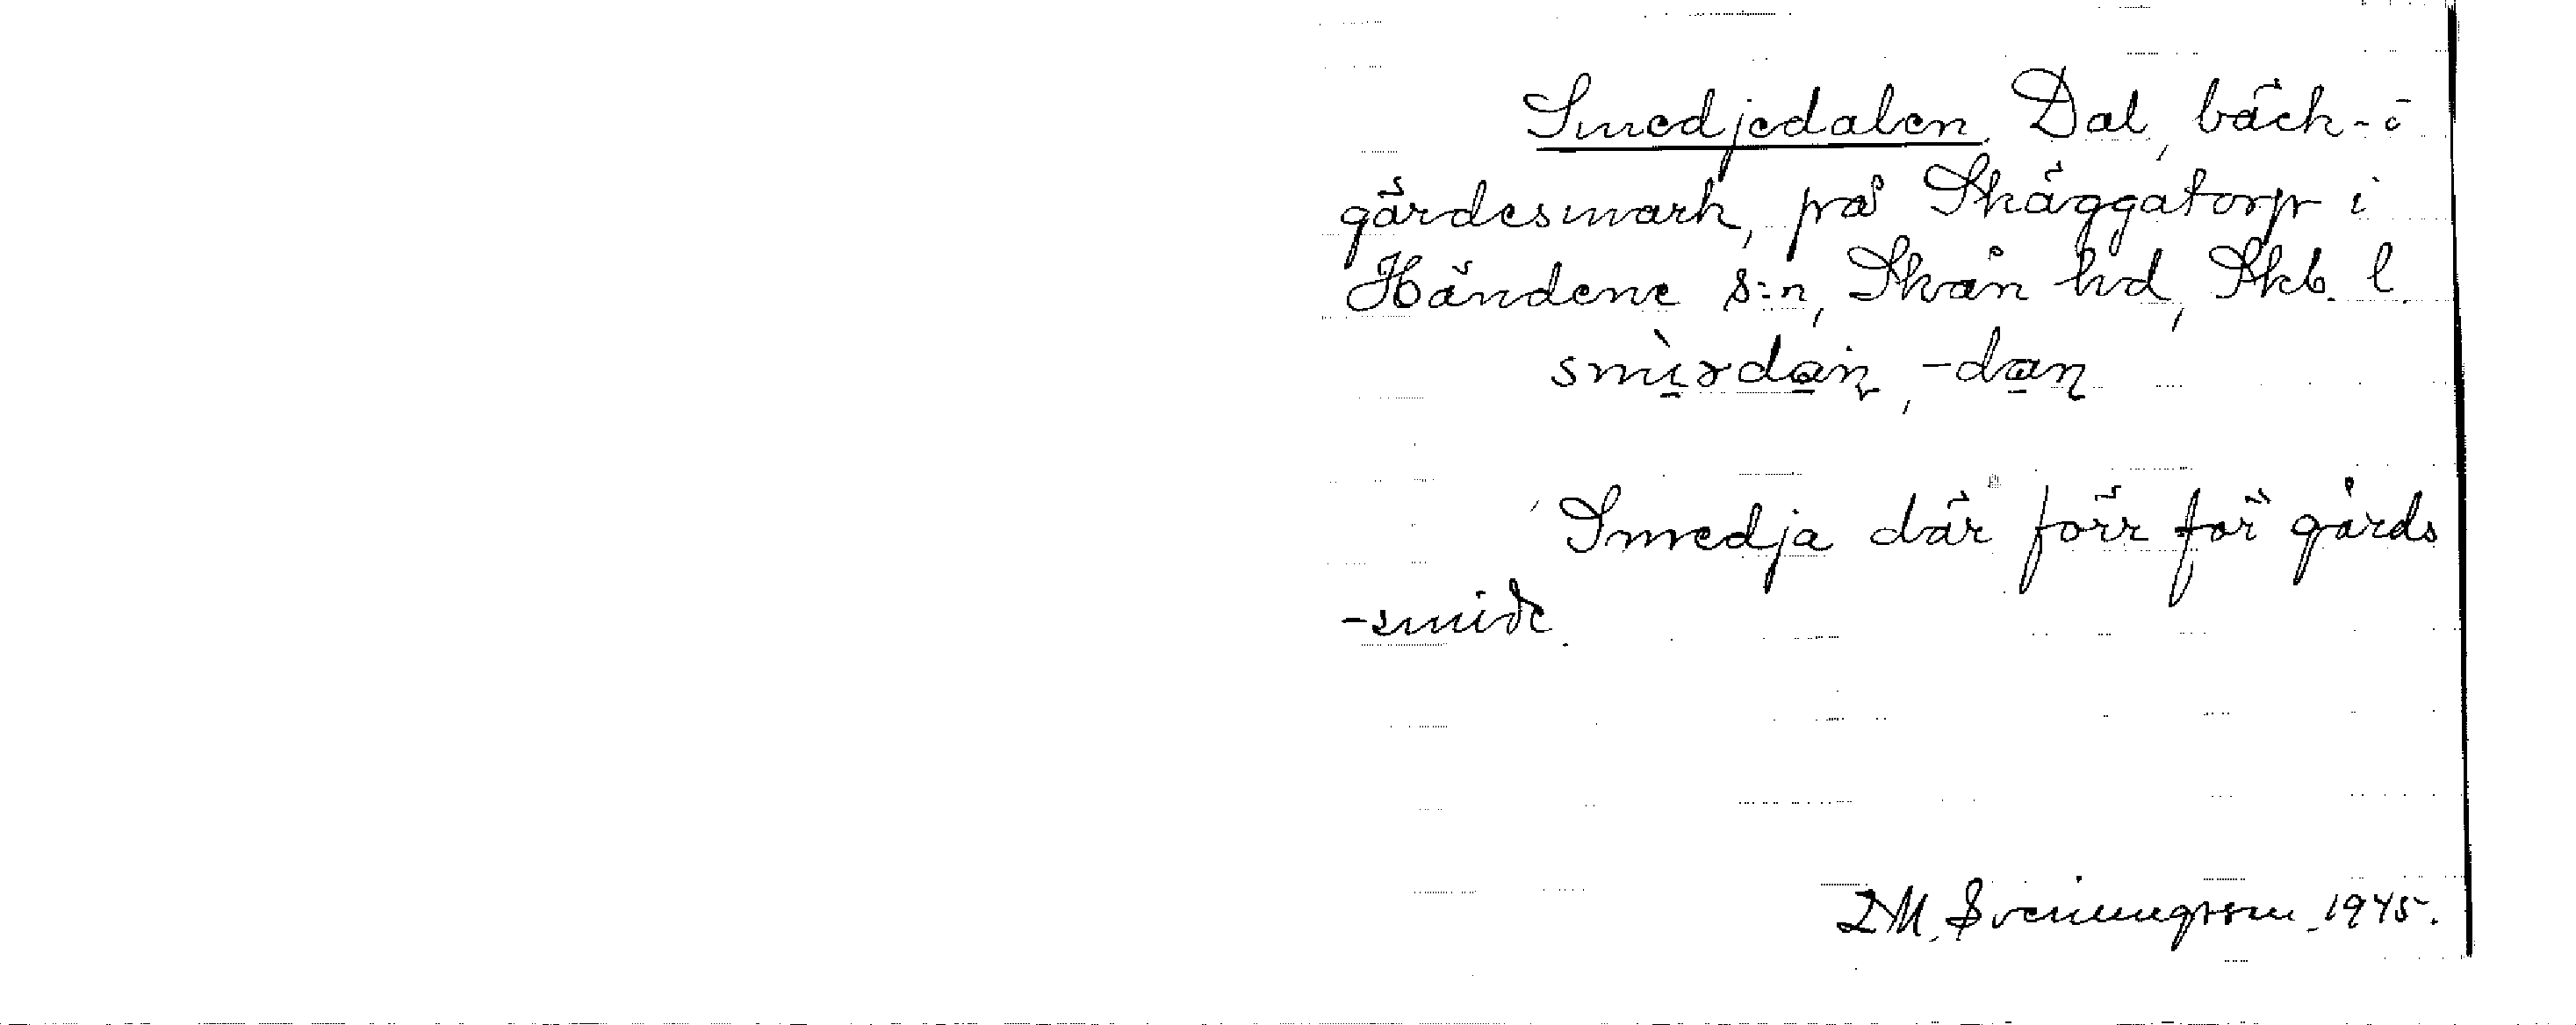 Smedjedalen. Dal, bäck- o
gärdesmark, på Skäggatorp i
Händene s:n, Skån hd, Skb. l.
smìrdan, -dan
Smedja där förr för gårds
-smide.
D.M. Sveningsson. 1945.